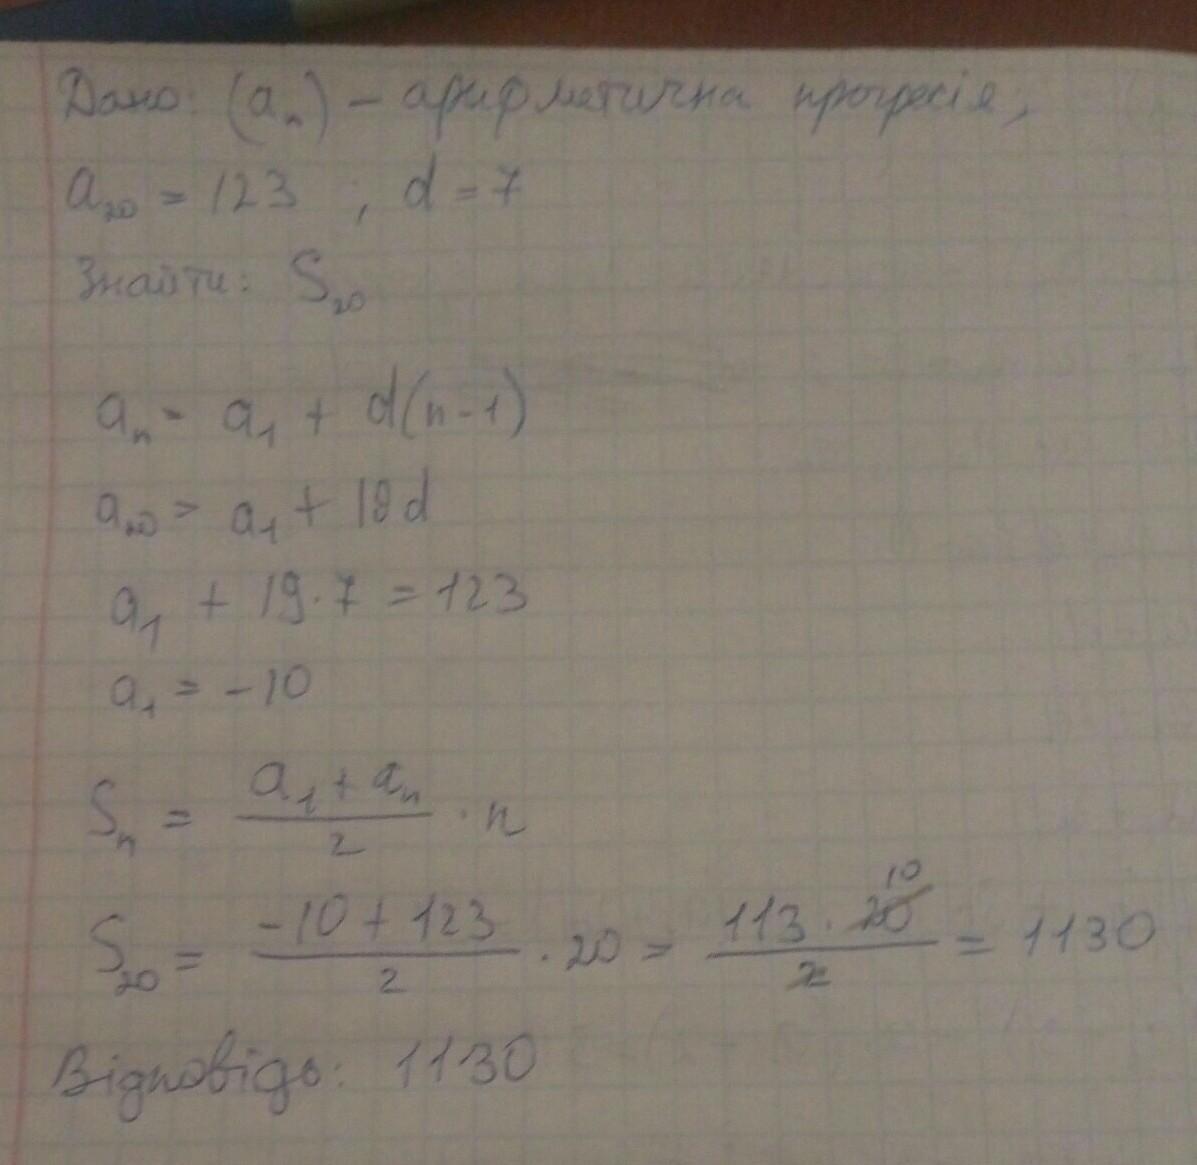 Дано: (aₙ) – арифметична прогресія;
a₂₀ = 123 ; d = 7
Знайти: S₂₀
aₙ = a₁ + d(n-1)
a₂₀ = a₁ + 19d
a₁ + 19·7 = 123
a₁ = -10
Sₙ = (a₁ + aₙ)/2 · n
S₂₀ = (-10 + 123)/2 · 20 = (113 · 20 10)/2 = 1130
Відповідь: 1130